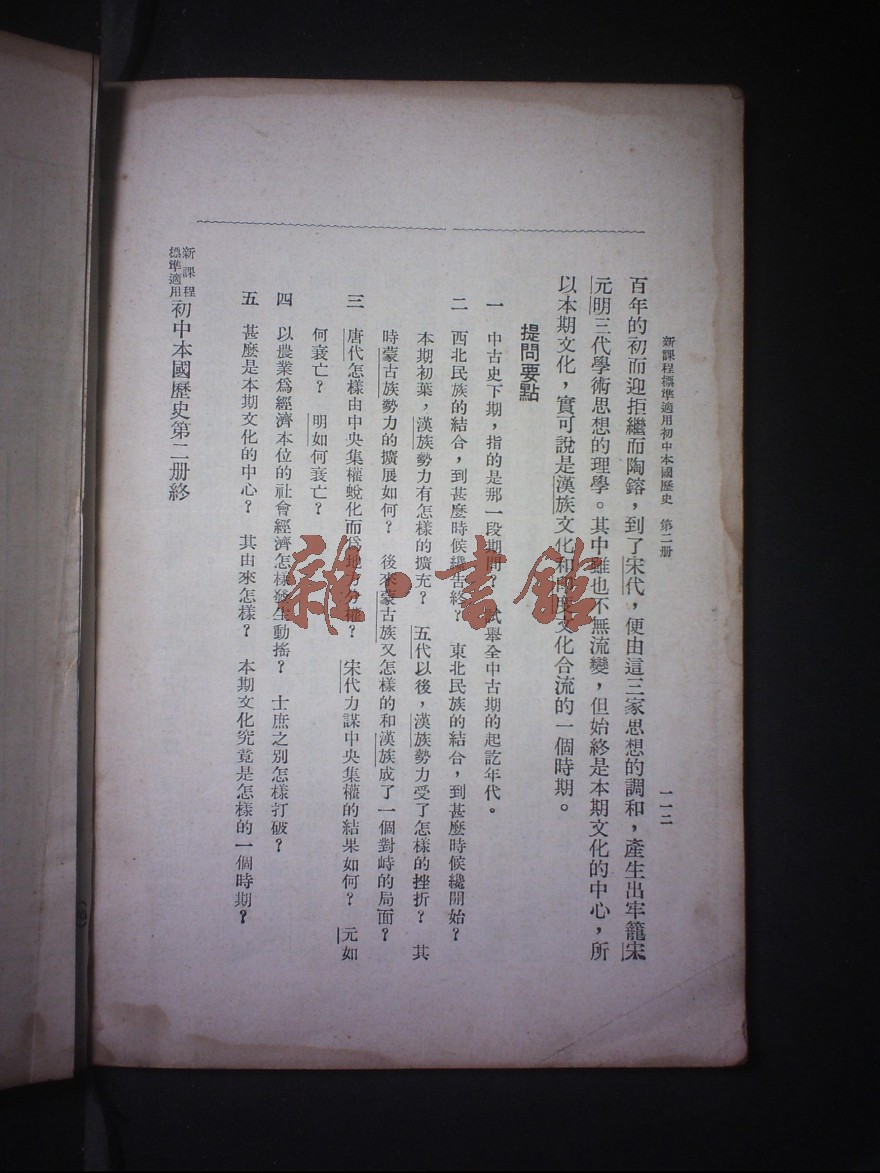 新課程標準適用初中本國歷史　第二册
一一二
百年的初而迎拒繼而陶鎔，到了宋代，便由這三家思想的調和，產生出牢籠宋
元明三代學術思想的理學。其中雖也不無流變，但始終是本期文化的中心，所
以本期文化，實可說是漢族文化和印度文化合流的一個時期。
提問要點
一　中古史下期，指的是那一段期間？　試舉全中古期的起訖年代。
二　西北民族的結合，到甚麼時候纔告終？　東北民族的結合，到甚麼時候纔開始？
本期初葉，漢族勢力有怎樣的擴充？　五代以後，漢族勢力受了怎樣的挫折？　其
時蒙古族勢力的擴展如何？　後來蒙古族又怎樣的和漢族成了一個對峙的局面？
三　唐代怎樣由中央集權蛻化而爲地方分權？　宋代力謀中央集權的結果如何？　元如
何衰亡？　明如何衰亡？
四　以農業爲經濟本位的社會經濟怎樣發生動搖？　士庶之別怎樣打破？
五　甚麼是本期文化的中心？　其由來怎樣？　本期文化究竟是怎樣的一個時期？
新課程
標準適用
初中本國歷史第二册終
雜·書館